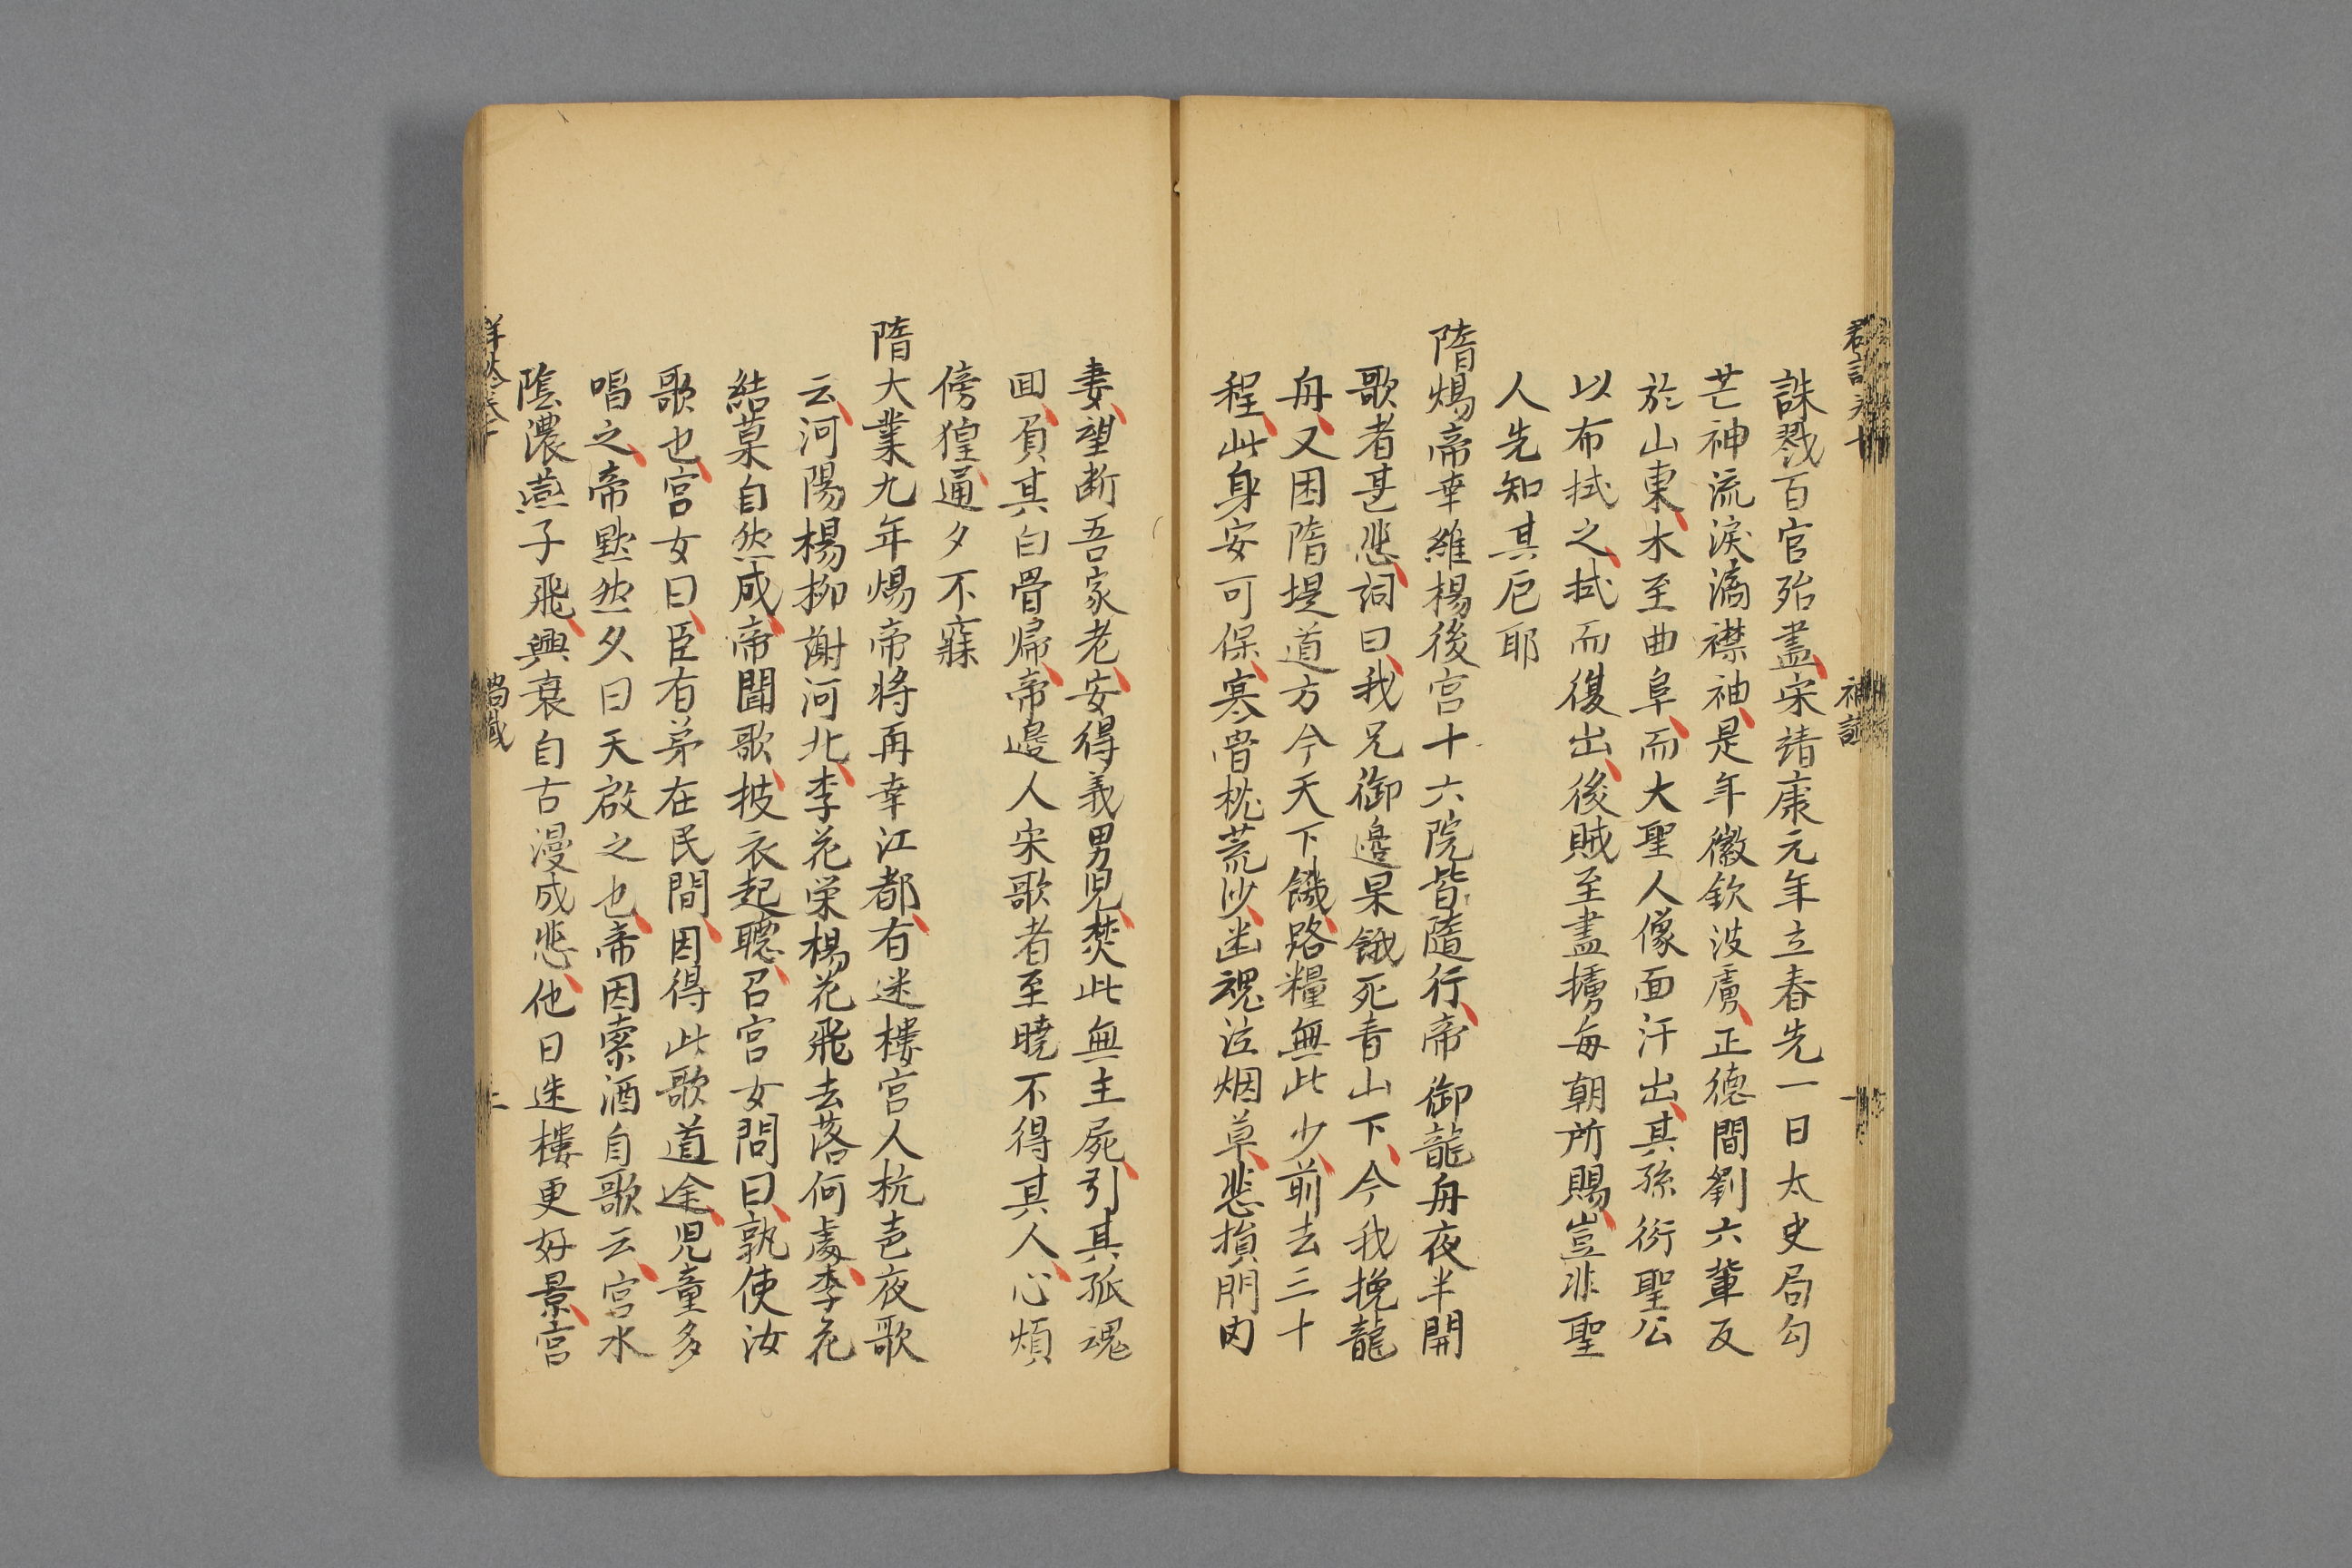 誅戮百官殆盡宋靖康元年立春先一日太史局勾
芒神流淚滴襟袖是年徽欽波虜正德間劉六輩反
於山東水至曲阜而大聖人像面汗出其孫衍聖公
以布拭之拭而復出後賊至盡擄每朝所賜豈非聖
人先知其厄耶
隋煬帝幸維楊後宮十六院皆隨行帝御龍舟夜半聞
歌者甚悲詞曰我兄御邊果餓死青山下今我挽龍
舟又困隋堤道方今天下饑路糧無此少前去三十
程此身安可保寒骨枕荒沙幽魂泣烟草悲損門內
妻望断吾家老安得義男児焚此無主屍引其孤魂
囬負其白骨歸帝邊人宋歌者至曉不得其人心煩
傍猩通夕不寐
隋大業九年煬帝將再幸江都有迷樓宮人杭奎夜歌
云河陽楊柳謝河北李花栄楊花飛去落何處李花
結菓自然成帝聞歌披衣起聽召宮女問曰孰使汝
歌也宮女曰臣有弟在民間因得此歌道途児童多
唱之帝默然久曰天啟之也帝因索酒自歌云宮水
陰濃燕子飛興衰自古漫成悲他日迷樓更好景宮